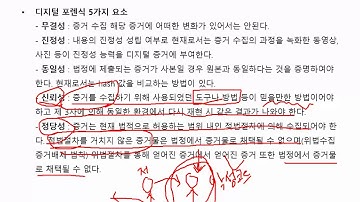 • 디지털 포렌식 5가지 요소
- 무결성 : 증거 수집 해당 증거에 어떠한 변화가 있어서는 안된다.
- 진정성 : 내용의 진정성 성립 여부로 현재로서는 증거 수집의 과정을 녹화한 동영상,
사진 등이 진정성 능력을 디지털 증거에 부여한다.
- 동일성 : 법정에 제출되는 증거가 사본일 경우 원본과 동일하다는 것을 증명하여야
한다. 현재로서는 hash 값을 비교하는 방법이 있다.
- 신뢰성 : 증거를 수집하기 위해 사용되었던 도구나 방법 등이 믿을만한 방법이어야
하고 제 3자에 의해 동일한 환경에서 다시 재현 시 같은 결과가 나와야 한다.
- 정당성 : 증거는 현재 법적으로 허용하는 범위 내인 적법절차에 의해 수집되어야 한
다. 적법절차를 거치지 않은 증거물은 법정에서 증거물로 채택될 수 없으며(위법수집
증거배제 법칙) 위법절차를 통해 얻어진 증거에서 얻어진 증거 또한 법정에서 증거물
로 채택될 수 없다.